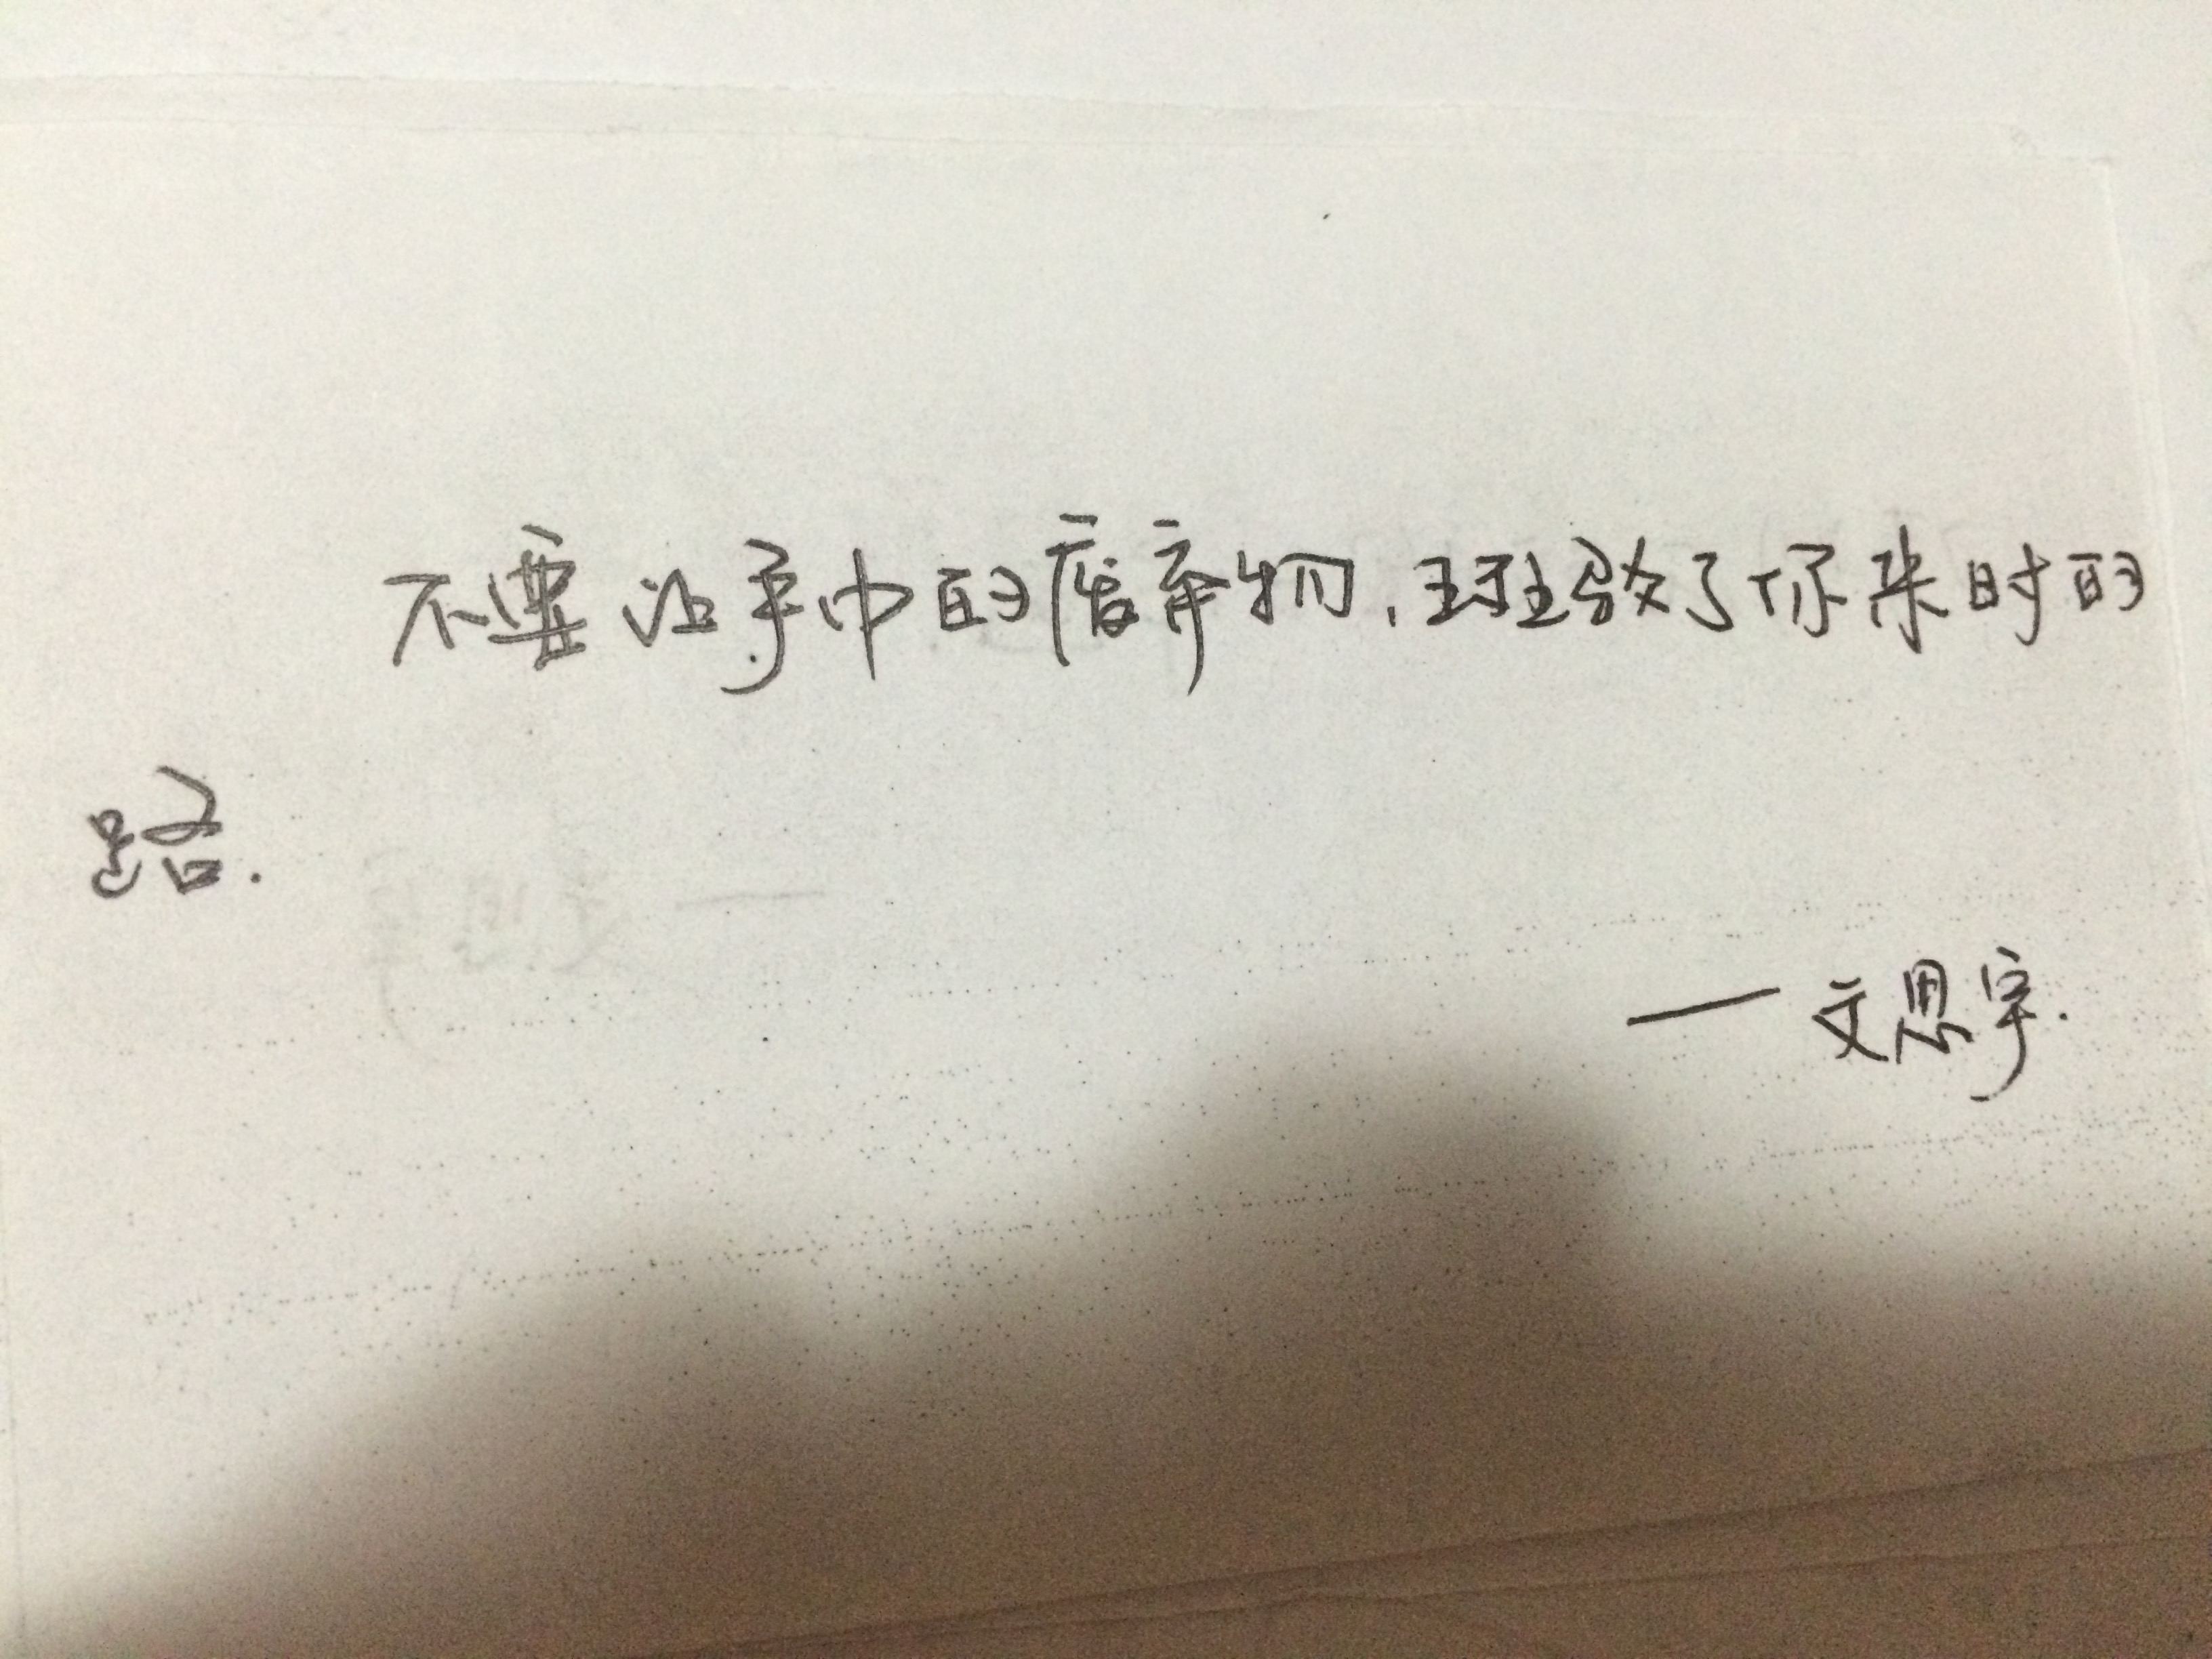 不要让手中的废弃物,斑驳了你来时的
路.
—文思宇.